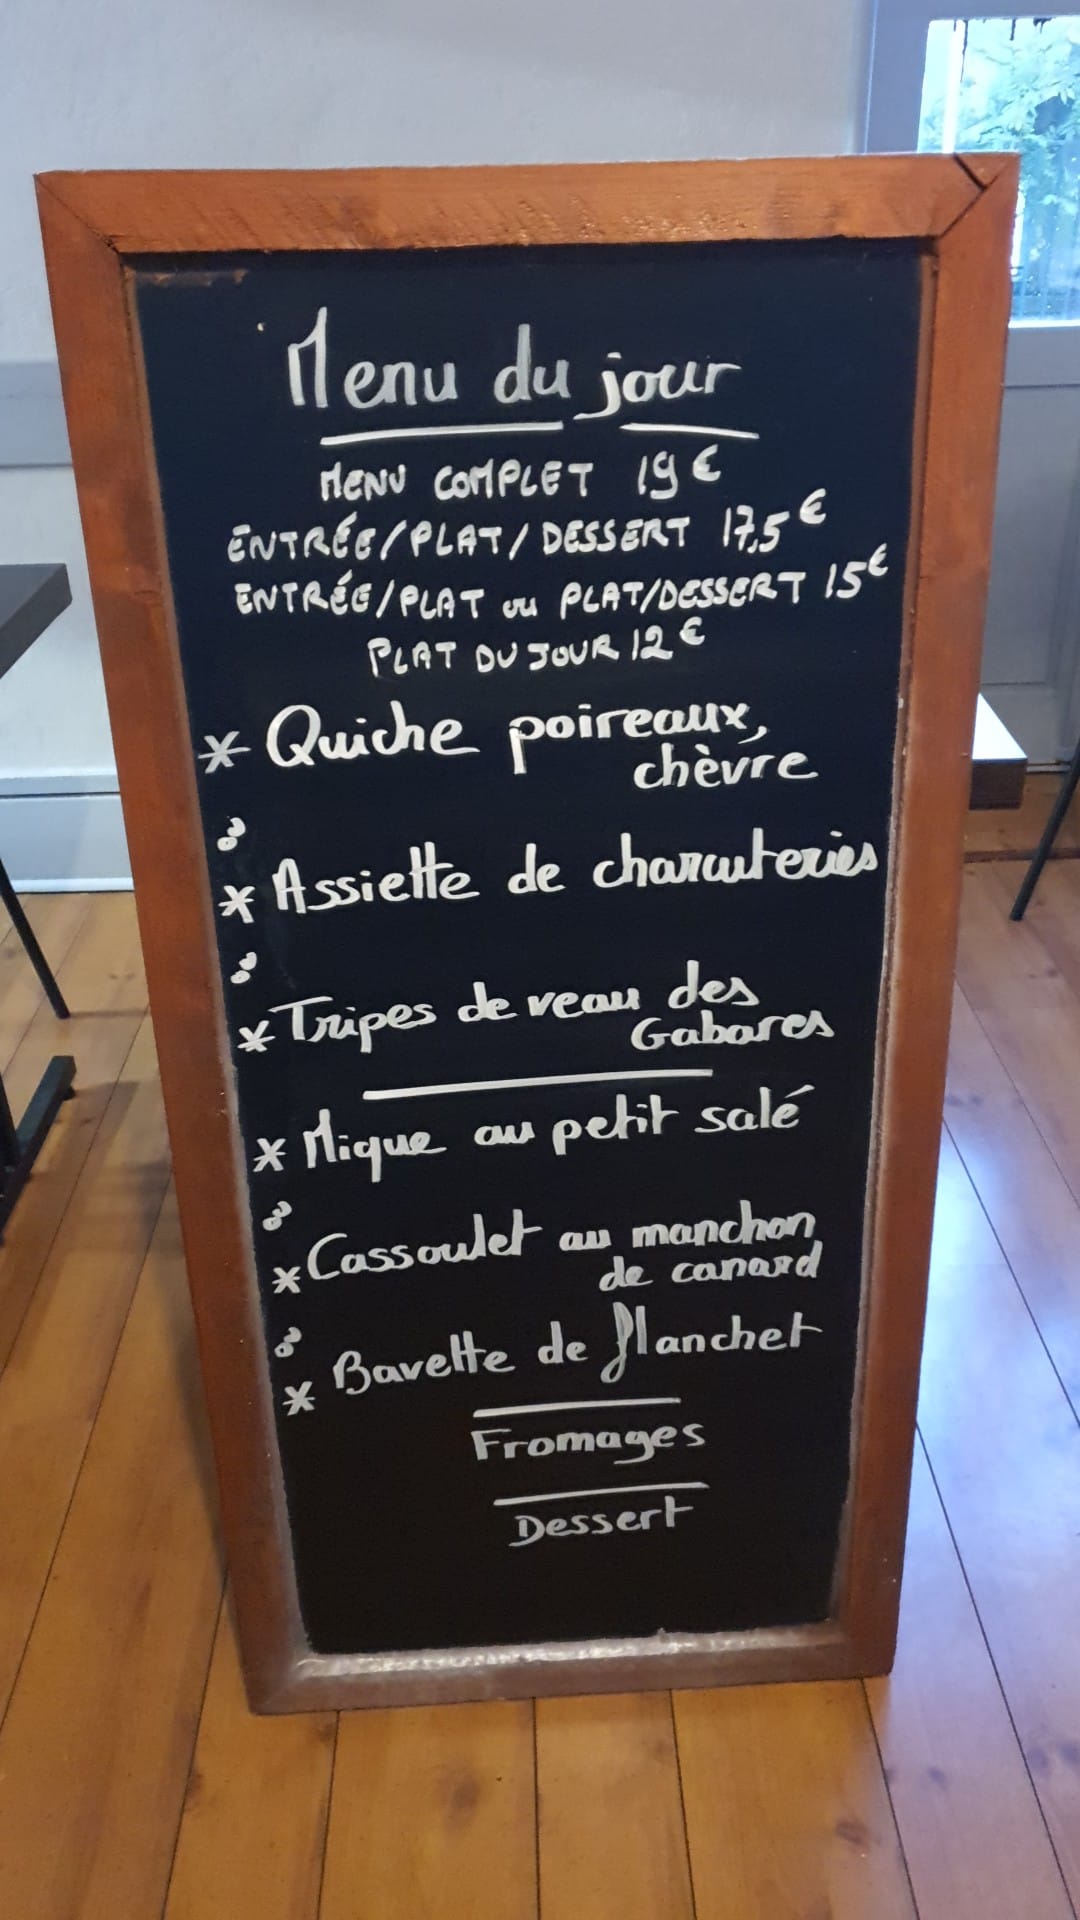 Menu du jour
MENU COMPLET 19€
ENTRÉE/PLAT/DESSERT 17,5€
ENTRÉE/PLAT ou PLAT/DESSERT 15€
PLAT DU JOUR 12€
* Quiche poireaux,
chèvre
* Assiette de charcuteries
* Tripes de veau des
Gabares
* Mique au petit salé
* Cassoulet au manchon
de canard
* Bavette de flanchet
Fromages
Dessert